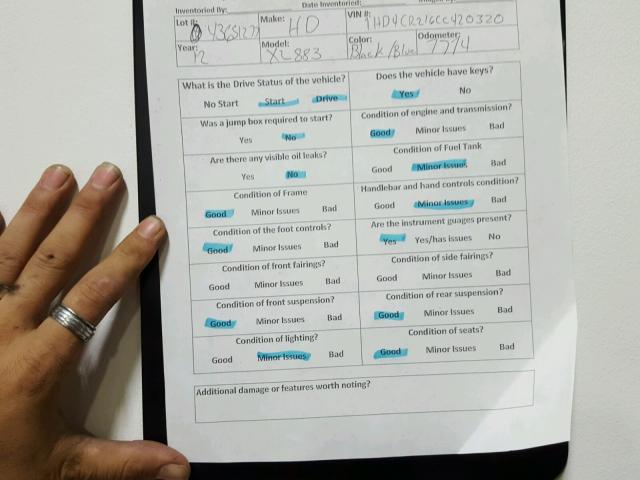 Inventoried By: Date Inventoried:
Lot #: Make: HD VIN #: 1HD4CR216CC420320
Year: 12 Model: XL 883 Color: Black/Blue Odometer: 7774
What is the Drive Status of the vehicle? Does the vehicle have keys?
No Start Start Drive Yes No
Was a jump box required to start? Condition of engine and transmission?
Yes No Good Minor Issues Bad
Are there any visible oil leaks? Condition of Fuel Tank
Yes No Good Minor Issues Bad
Condition of Frame Handlebar and hand controls condition?
Good Minor Issues Bad Good Minor Issues Bad
Condition of the foot controls? Are the instrument guages present?
Good Minor Issues Bad Yes Yes/has issues No
Condition of front fairings? Condition of side fairings?
Good Minor Issues Bad Good Minor Issues Bad
Condition of front suspension? Condition of rear suspension?
Good Minor Issues Bad Good Minor Issues Bad
Condition of lighting? Condition of seats?
Good Minor Issues Bad Good Minor Issues Bad
Additional damage or features worth noting?